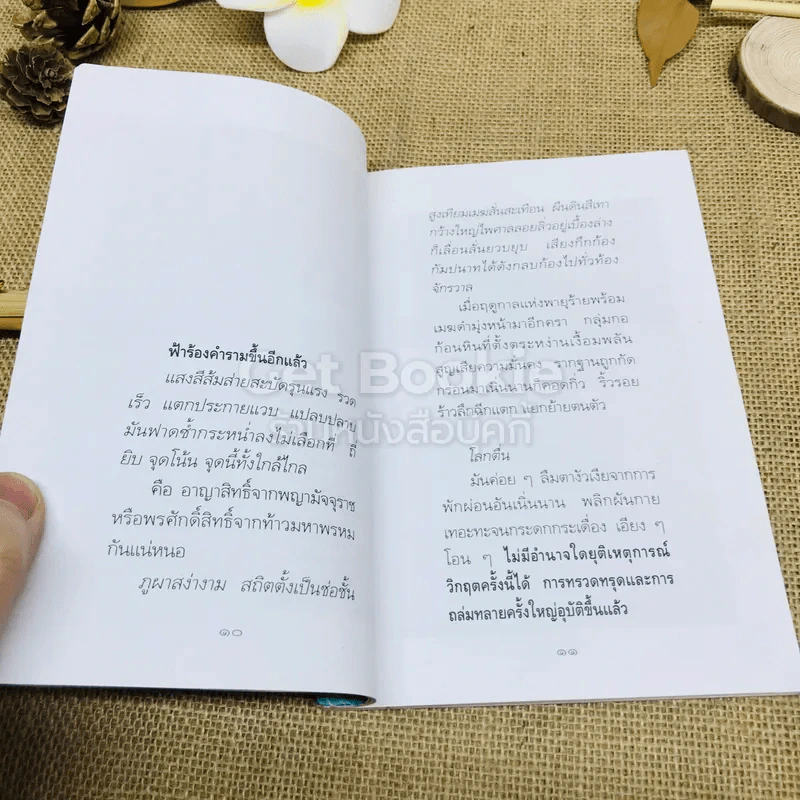 ฟ้าร้องคำรามขึ้นอีกแล้ว
แสงสีส้มส่ายสะบัดรุนแรง รวด
เร็ว แตกประกายแวบ แปลบปลาบ
มันฟาดซ้ำกระหน่ำลงไม่เลือกที่ ถี่
ยิบ จุดโน้น จุดนี้ทั้งใกล้ไกล
คือ อาญาสิทธิ์จากพญามัจจุราช
หรือพรศักดิ์สิทธิ์จากท้าวมหาพรหม
กันแน่หนอ
ภูผาสง่างาม สถิตตั้งเป็นช่อชั้น
๑๐
สูงเทียมเมฆสั่นสะเทือน ผืนดินสีเทา
กว้างใหญ่ไพศาลลอยลิ่วอยู่เบื้องล่าง
ก็เลื่อนลั่นยวบยุบ เสียงกึกก้อง
กัมปนาทได้ดังกลบก้องไปทั่วท้อง
จักรวาล
เมื่อฤดูกาลแห่งพายุร้ายพร้อม
เมฆดำมุ่งหน้ามาอีกครา กลุ่มกอ
ก้อนหินที่ตั้งตระหง่านเงื้อมพลัน
สูญเสียความมั่นคง รากฐานถูกกัด
กร่อนมาเนิ่นนานก็คอดกิ่ว ริ้วรอย
ร้าวลึกฉีกแตก แยกย้ายตนตัว
โลกตื่น
มันค่อย ๆ ลืมตางัวเงียจากการ
พักผ่อนอันเนิ่นนาน พลิกผันกาย
เทอะทะจนกระดกกระเดื่อง เอียง ๆ
โอน ๆ ไม่มีอำนาจใดยุติเหตุการณ์
วิกฤตครั้งนี้ได้ การทรวดทรุดและการ
ถล่มทลายครั้งใหญ่อุบัติขึ้นแล้ว
๑๑
Get Bookie
ร้านหนังสือบุคกี้